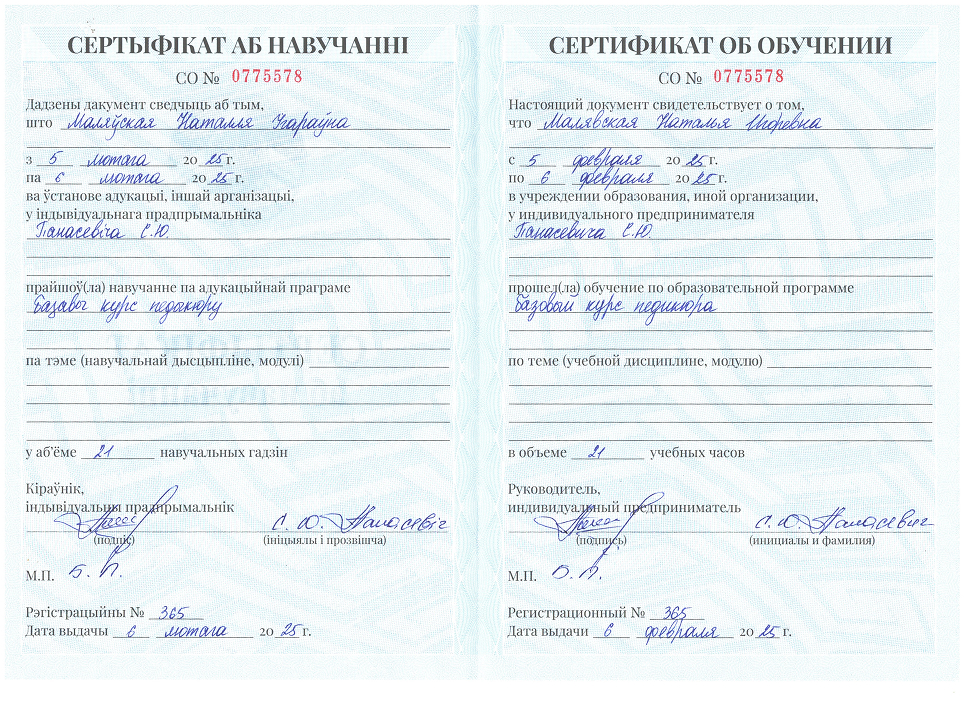 СЕРТЫФІКАТ АБ НАВУЧАННІ
СО № 0775578
Дадзены дакумент сведчыць аб тым,
што Маляўская Наталля Ігараўна
з 5 лютага 2025 г.
па 6 лютага 2025 г.
ва ўстанове адукацыі, іншай арганізацыі,
у індывідуальнага прадпрымальніка
Панасевіча С.Ю
прайшоў(ла) навучанне па адукацыйнай праграме
Базавы курс педыкюру
па тэме (навучальнай дысцыпліне, модулі)
у аб'ёме 21 навучальных гадзін
Кіраўнік,
індывідуальны прадпрымальнік
С. Ю. Панасевіч
(подпіс) (ініцыялы і прозвішча)
М.П. Б. П.
Рэгістрацыйны № 365
Дата выдачы 6 лютага 2025 г.
СЕРТИФИКАТ ОБ ОБУЧЕНИИ
СО № 0775578
Настоящий документ свидетельствует о том,
что Малявская Наталья Игоревна
с 5 февраля 2025 г.
по 6 февраля 2025 г.
в учреждении образования, иной организации,
у индивидуального предпринимателя
Панасевича С.Ю.
прошел(ла) обучение по образовательной программе
Базовый курс педикюра
по теме (учебной дисциплине, модулю)
в объеме 21 учебных часов
Руководитель,
индивидуальный предприниматель
С. Ю. Панасевич
(подпись) (инициалы и фамилия)
М.П. Б. П.
Регистрационный № 365
Дата выдачи 6 февраля 2025 г.